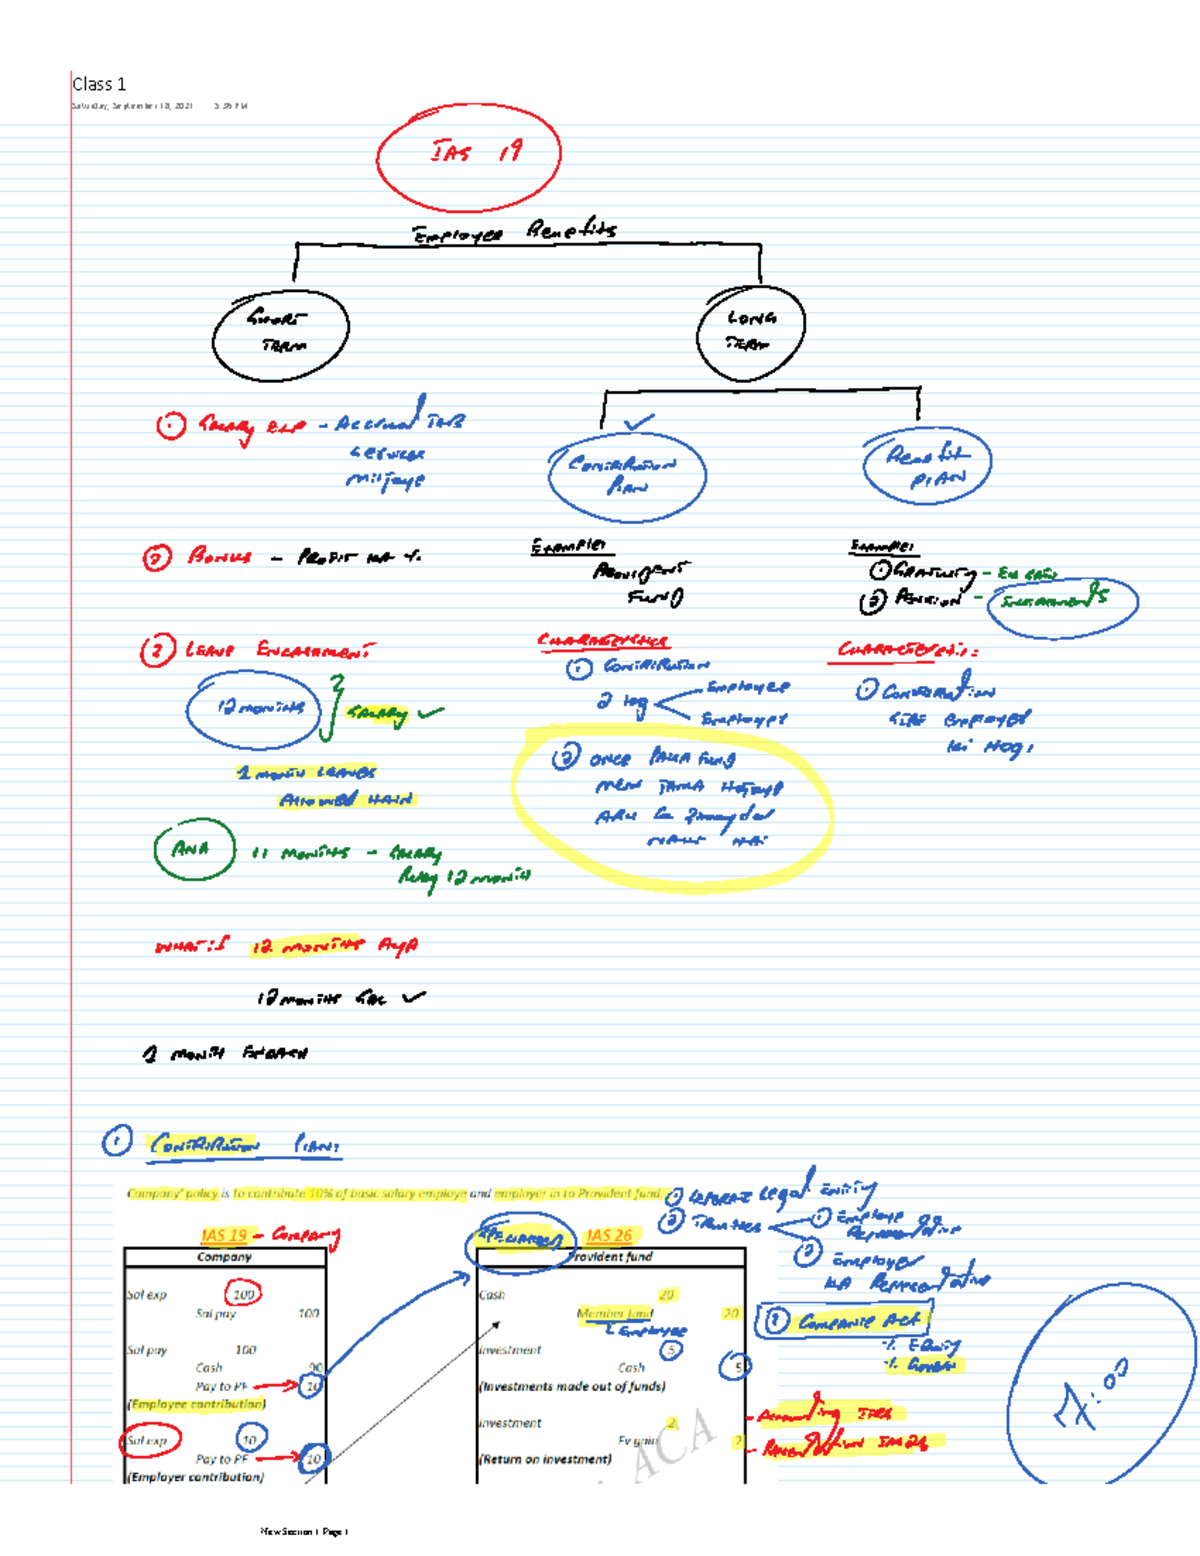 Class 1
Saturday, September 18, 2021
IAS 19
Employee Benefits
SHORT
TERM
LONG
TERM
① SALARY EXP - ACCRUAL
② BONUS - PROFIT KA %
③ LEAVE ENCASHMENT
12 MONTHS
SALARY ✓
1 MONTH LEAVES
ALLOWED HAIN
ANA 11 MONTHS - SALARY
12 MONTH
WHAT IF 12 MONTHS AAYA
12 MONTHS SAL ✓
1 MONTH ENCASH
CONTRIBUTION
PLAN
✓
EXAMPLES
PROVIDENT
FUND
CHARACTERISTICS
① CONTRIBUTION
2 log
Employee
Employer
② ONCE PAISA FUND
MEIN JAMA
NAHI HAI
Benefit
PLAN
EXAMPLES
① GRATUITY
② PENSION - INSTALLMENTS
CHARACTERISTICS:
① CONTRIBUTION
SIRF EMPLOYER
KI HOGI
① CONTRIBUTION PLANS
Company' policy is to contribute 10% of basic salary employe and employer in to Provident fund
① SEPARATE Legal ENTITY
② TRUSTEES
① Employee
REPRESENTATIVE
② Employer
KA REPRESENTATIVE
③ COMPANIE ACT
% EQUITY
IAS 19 - Company
Company
Sal exp 100
Sal pay 100
Sal pay 100
Cash 90
Pay to PF 10
(Employee contribution)
Sal exp 10
Pay to PF 10
(Employer contribution)
IAS 26
Provident fund
Cash 20
Member fund 20
Employee
Investment 5
Cash 5
(Investments made out of funds)
Investment 2
Fv gain 2
(Return on investment)
ACA
Accounting
IAS 26
7:00
New Section 1 Page 1